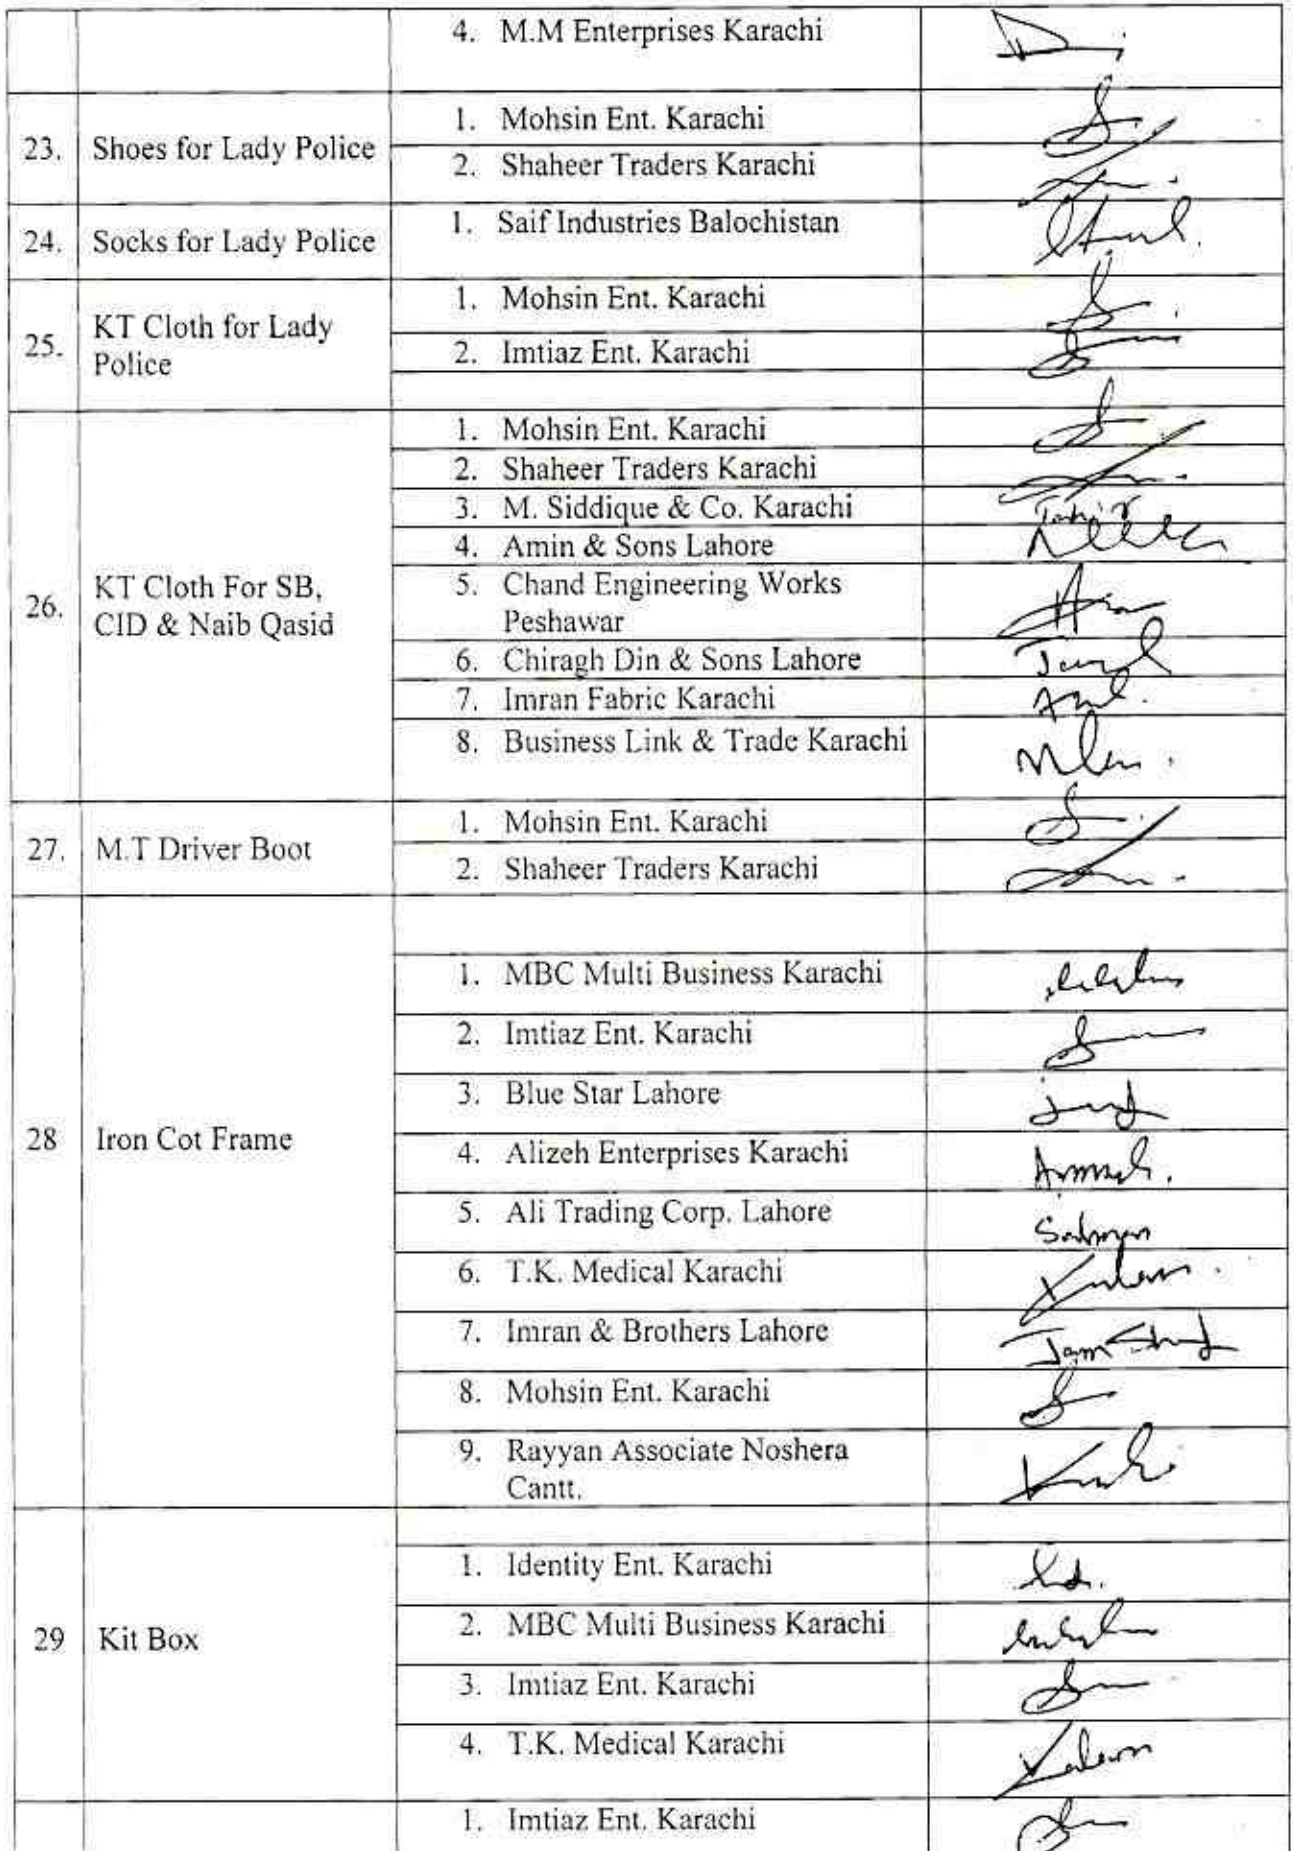 4. M.M Enterprises Karachi
23. Shoes for Lady Police
1. Mohsin Ent. Karachi
2. Shaheer Traders Karachi
24. Socks for Lady Police
1. Saif Industries Balochistan
25. KT Cloth for Lady
Police
1. Mohsin Ent. Karachi
2. Imtiaz Ent. Karachi
26. KT Cloth For SB,
CID & Naib Qasid
1. Mohsin Ent. Karachi
2. Shaheer Traders Karachi
3. M. Siddique & Co. Karachi
Tahir
4. Amin & Sons Lahore
5. Chand Engineering Works
Peshawar
6. Chiragh Din & Sons Lahore
7. Imran Fabric Karachi
8. Business Link & Trade Karachi
27. M.T Driver Boot
1. Mohsin Ent. Karachi
2. Shaheer Traders Karachi
28 Iron Cot Frame
1. MBC Multi Business Karachi
2. Imtiaz Ent. Karachi
3. Blue Star Lahore
4. Alizeh Enterprises Karachi
5. Ali Trading Corp. Lahore
6. T.K. Medical Karachi
7. Imran & Brothers Lahore
8. Mohsin Ent. Karachi
9. Rayyan Associate Noshera
Cantt.
29 Kit Box
1. Identity Ent. Karachi
2. MBC Multi Business Karachi
3. Imtiaz Ent. Karachi
4. T.K. Medical Karachi
1. Imtiaz Ent. Karachi